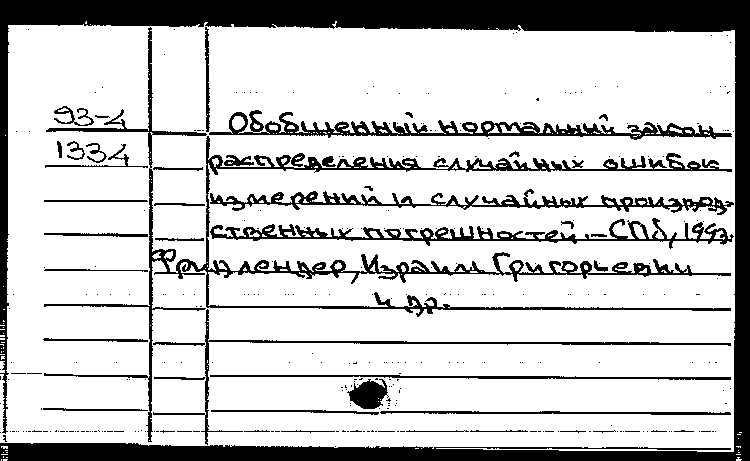 93-4 Обобщенный нормальный закон
1334 распределения случайных ошибок
измерений и случайных производ-
ственных погрешностей. – СПб, 1993.
Фридлендер, Израиль Григорьевич
и др.